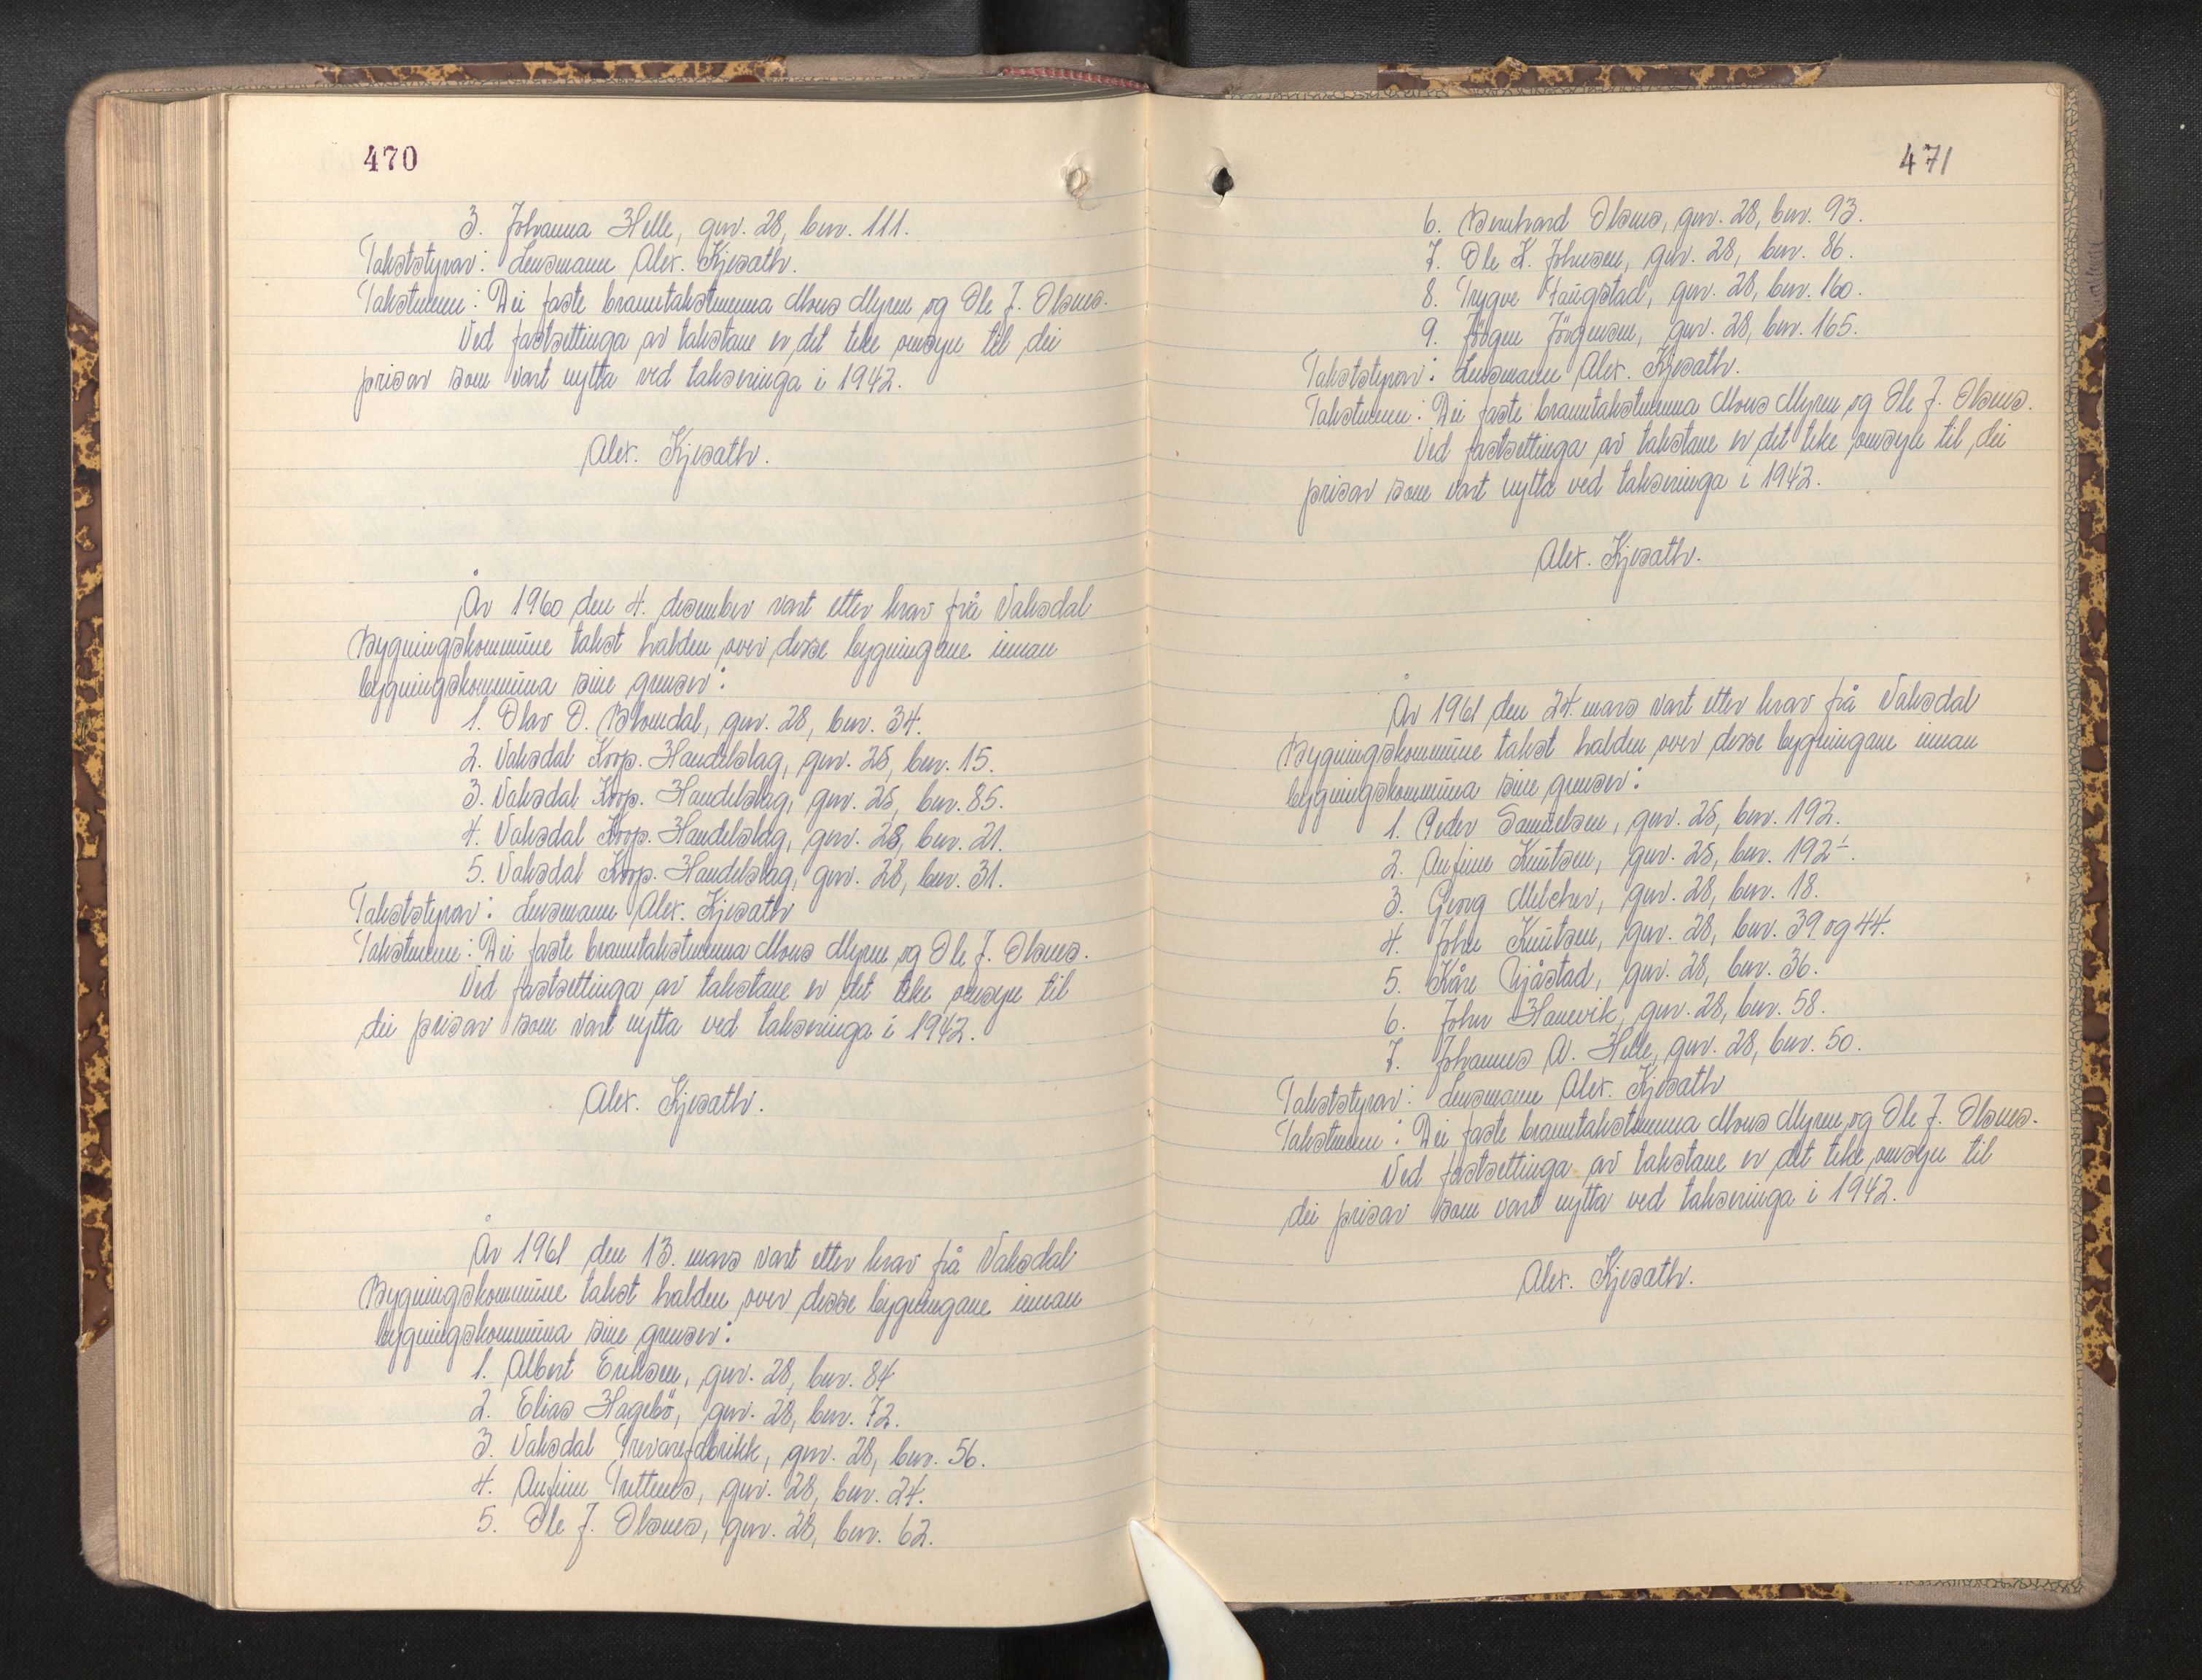 470
3. Johanna Helle, gnr. 28, bnr. 111.
Takststyrar: Lensmann Alex. Kjesath.
Takstmenn: Dei faste branntakstmenna Mons Myren og Ole J. Olsnes.
Ved fastsettinga av takstane er det teke omsyn til dei
prisar som vart nytta ved takseringa i 1942.
Alex. Kjesath.
År 1960 den 4. desember vart etter krav frå Vaksdal
Bygningskommune takst halden over desse bygningane innan
bygningskommuna sine grenser:
1. Olav O. Blomdal, gnr. 28, bnr. 34.
2. Vaksdal Koop. Handelslag, gnr. 28, bnr. 15.
3. Vaksdal Koop. Handelslag, gnr. 28, bnr. 85.
4. Vaksdal Koop. Handelslag, gnr. 28, bnr. 21.
5. Vaksdal Koop. Handelslag, gnr. 28, bnr. 31.
Takststyrar: Lensmann Alex. Kjesath
Takstmenn: Dei faste branntakstmenna Mons Myren og Ole J. Olsnes.
Ved fastsettinga av takstane er det teke omsyn til
dei prisar som vart nytta ved takseringa i 1942.
Alex. Kjesath.
År 1961 den 13. mars vart etter krav frå Vaksdal
Bygningskommune takst halden over desse bygningane innan
bygningskommuna sine grenser:
1. Albert Eriksen, gnr. 28, bnr. 84
2. Elias Hagebö, gnr. 28, bnr. 72.
3. Vaksdal Trevarefabrikk, gnr. 28, bnr. 56.
4. Anfinn Tettenes, gnr. 28, bnr. 24.
5. Ole J. Olsnes, gnr. 28, bnr. 62.
471
6. Bernhard Olsnes, gnr. 28, bnr. 93.
7. Ole K. Johnsen, gnr. 28, bnr. 86.
8. Trygve Haugstad, gnr. 28, bnr. 160.
9. Jörgen Jörgensen, gnr. 28, bnr. 165.
Takststyrar: Lensmann Alex. Kjesath.
Takstmenn: Dei faste branntakstmenna Mons Myren og Ole J. Olsnes.
Ved fastsettinga av takstane er det teke omsyn til dei
prisar som vart nytta ved takseringa i 1942.
Alex. Kjesath.
År 1961 den 24. mars vart etter krav frå Vaksdal
Bygningskommune takst halden over desse bygningane innan
bygningskommuna sine grenser:
1. Peder Samuelsen, gnr. 28, bnr. 192.
2. Anfinn Knutsen, gnr. 28, bnr. 192
3. Georg Melcher, gnr. 28, bnr. 18.
4. John Knutsen, gnr. 28, bnr. 39 og 44.
5. Kåre Gjåstad, gnr. 28, bnr. 36.
6. John Hanevik, gnr. 28, bnr. 58.
7. Johannes A. Helle, gnr. 28, bnr. 50.
Takststyrar: Lensmann Alex. Kjesath
Takstmenn: Dei faste branntakstmenna Mons Myren og Ole J. Olsnes.
Ved fastsettinga av takstane er det teke omsyn til
dei prisar som vart nytta ved takseringa i 1942.
Alex. Kjesath.